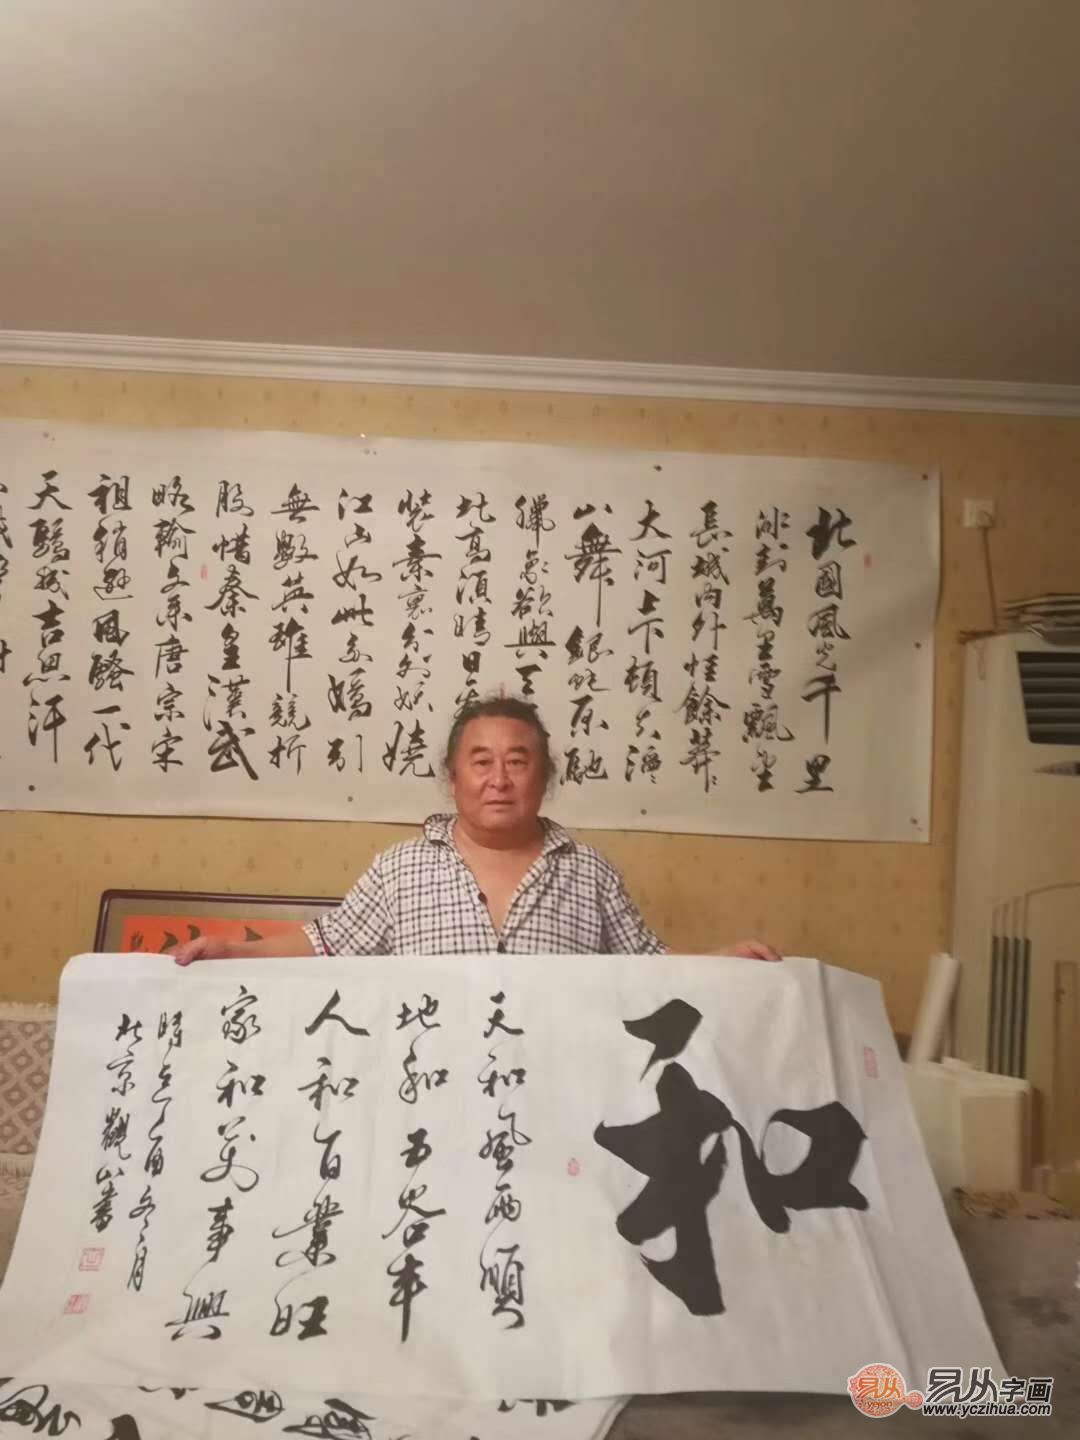 北國風光千里
冰封萬里雪飄望
長城內外惟餘莽〻
大河上下頓失滔〻
山舞銀蛇原馳
臘象欲與天
比高須晴日看
裝素裹分外妖嬈
江山如此多嬌引
無數英雄競折
腰惜秦皇漢武
略輸文采唐宗宋
祖稍遜風騷一代
天驕成吉思汗
和
天和風雨順
地和五谷丰
人和百業旺
家和萬事興
時在丁酉冬月
北京觀山書
易从
易从字画
www.yczihua.com